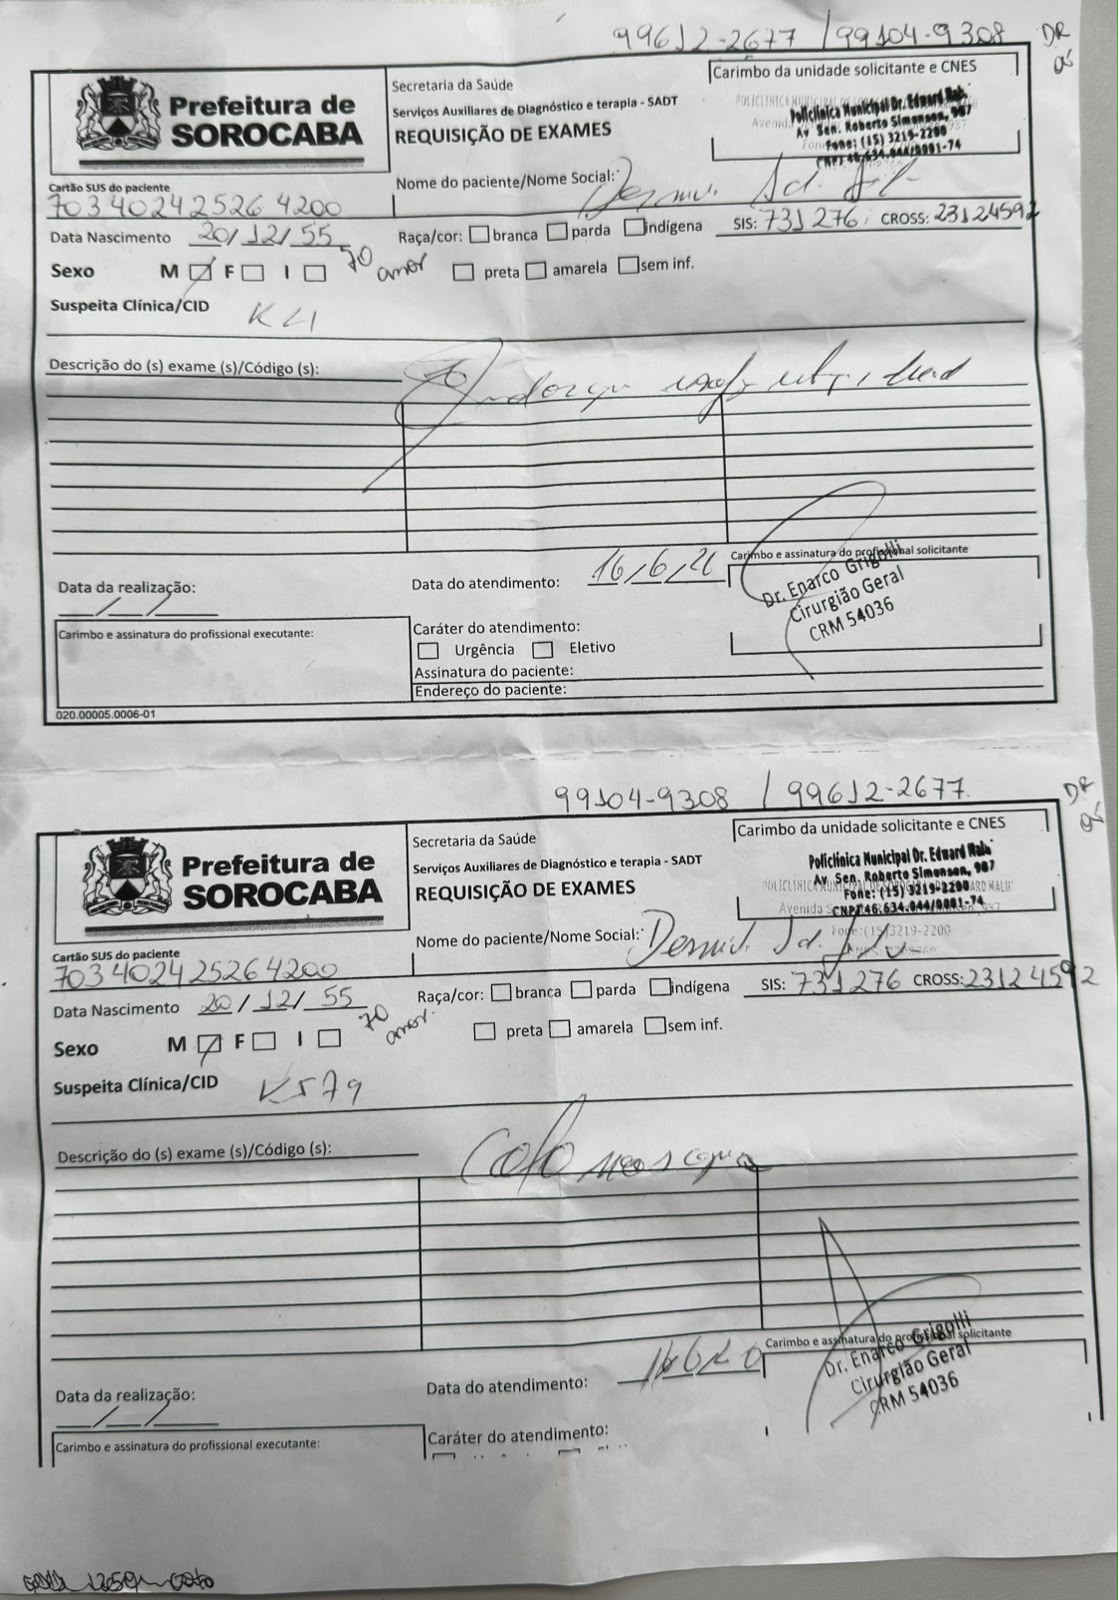 99612-2677 / 99104-9308
DR
Prefeitura de
SOROCABA
Secretaria da Saúde
Serviços Auxiliares de Diagnóstico e terapia - SADT
REQUISIÇÃO DE EXAMES
Carimbo da unidade solicitante e CNES
Policlínica Municipal Dr. Edward
Av Sen. Roberto Simonsen, 987
Fone: (15) 3219-2200
46.634.044/0001-74
Nome do paciente/Nome Social:
Cartão SUS do paciente
703 4024 2526 4200
Data Nascimento 20/12/55 70
Raça/cor: branca parda indígena
SIS: 731276 CROSS: 23124592
Sexo M F I
preta amarela sem inf.
Suspeita Clínica/CID
Descrição do (s) exame (s)/Código (s):
Data da realização: / /
Data do atendimento: 16/6/26
Carimbo e assinatura do profissional solicitante
Dr. Enarco Grigolli
Cirurgião Geral
CRM 54036
Carimbo e assinatura do profissional executante:
Caráter do atendimento:
Urgência Eletivo
Assinatura do paciente:
Endereço do paciente:
020.00005.0006-01
99104-9308 / 99612-2677
DR
Prefeitura de
SOROCABA
Secretaria da Saúde
Serviços Auxiliares de Diagnóstico e terapia - SADT
REQUISIÇÃO DE EXAMES
Carimbo da unidade solicitante e CNES
Policlínica Municipal Dr. Edward
Av. Sen. Roberto Simonsen, 987
Fone: (15) 3219-2200
46.634.044/0001-74
Nome do paciente/Nome Social:
Cartão SUS do paciente
703 4024 2526 4200
Data Nascimento 20/12/55 70
Raça/cor: branca parda indígena
SIS: 731276 CROSS: 23124592
Sexo M F I
preta amarela sem inf.
Suspeita Clínica/CID K579
Descrição do (s) exame (s)/Código (s):
Data da realização: / /
Data do atendimento:
Carimbo e assinatura do profissional solicitante
Dr. Enarco Grigolli
Cirurgião Geral
CRM 54036
Carimbo e assinatura do profissional executante:
Caráter do atendimento: